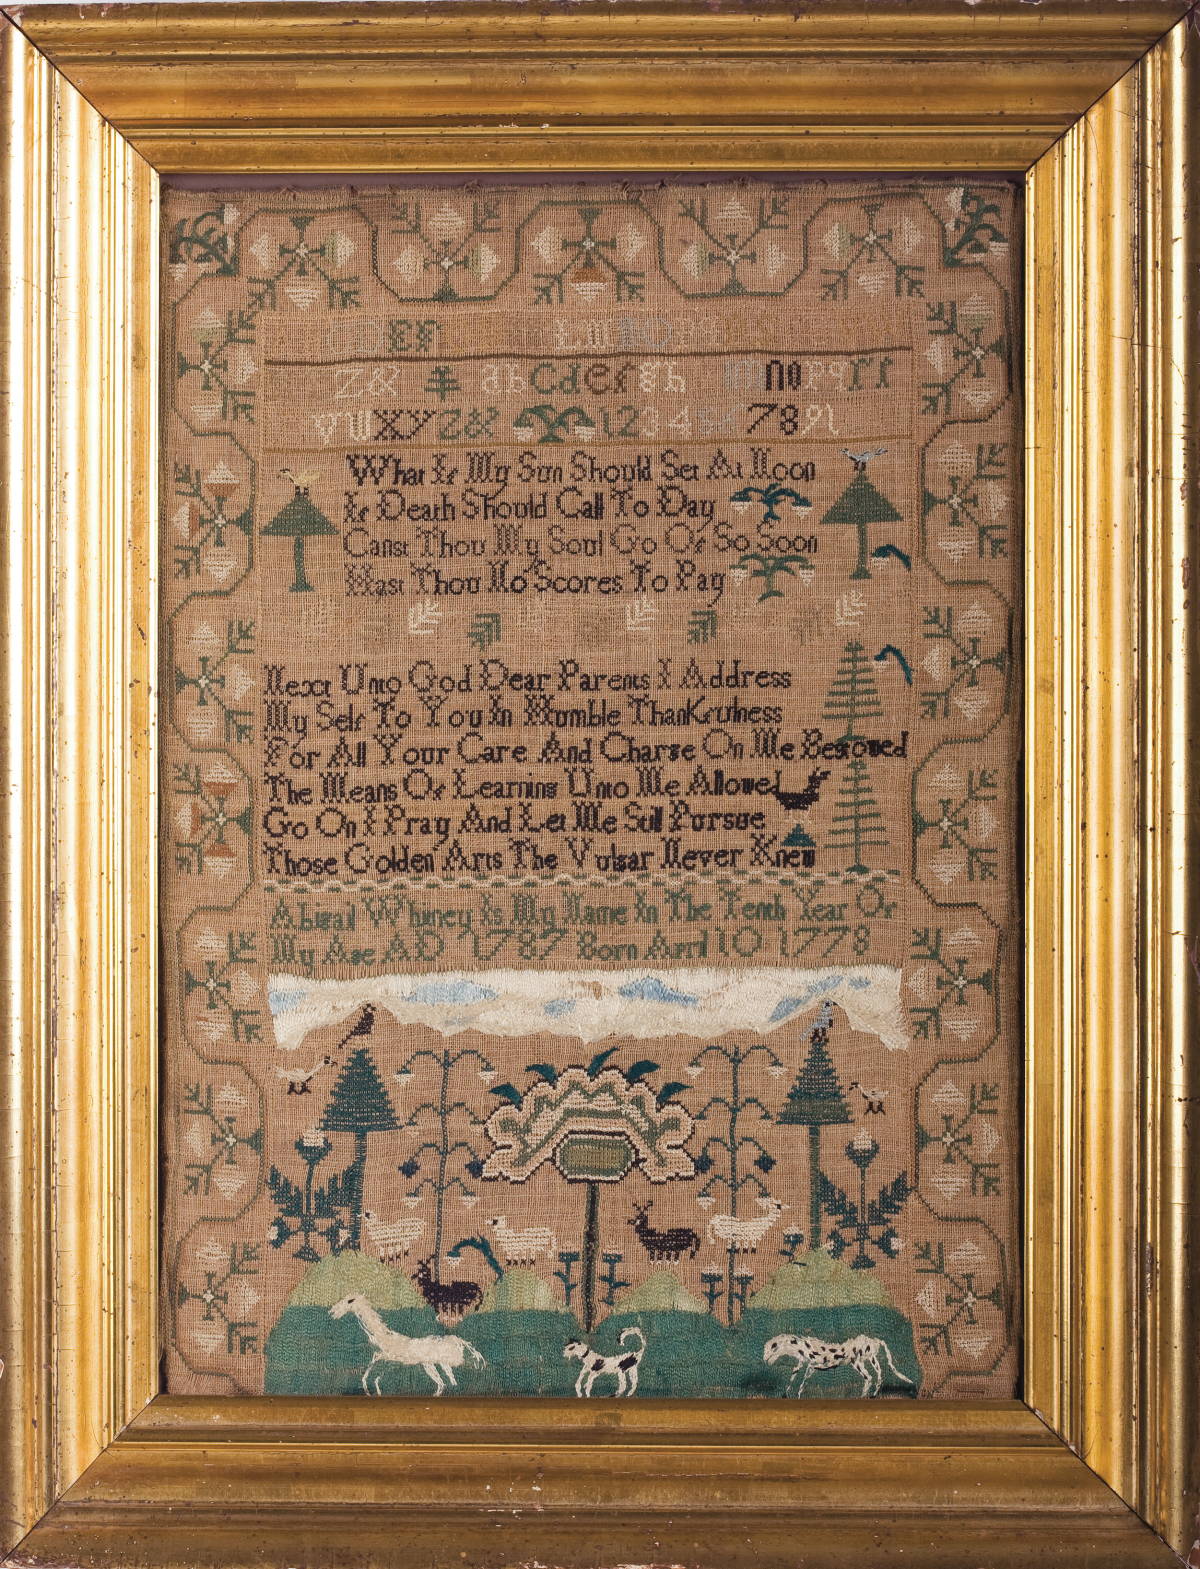 C D E F L M N O P Q
Z & a b c d e f g h m n o p q r s
v w x y z & 1 2 3 4 5 6 7 8 9 1
What If My Sun Should Set At Noon
If Death Should Call To Day
Canst Thou My Soul Go Of So Soon
Hast Thou No Scores To Pay
Next Unto God Dear Parents I Address
My Self To You In Humble Thankfulness
For All Your Care And Charge On Me Bestowed
The Means Of Learning Unto Me Allowed
Go On I Pray And Let Me Still Pursue
Those Golden Arts The Vulgar Never Knew
Abigail Whitney Is My Name In The Tenth Year Of
My Age AD 1787 Born April 10 1778